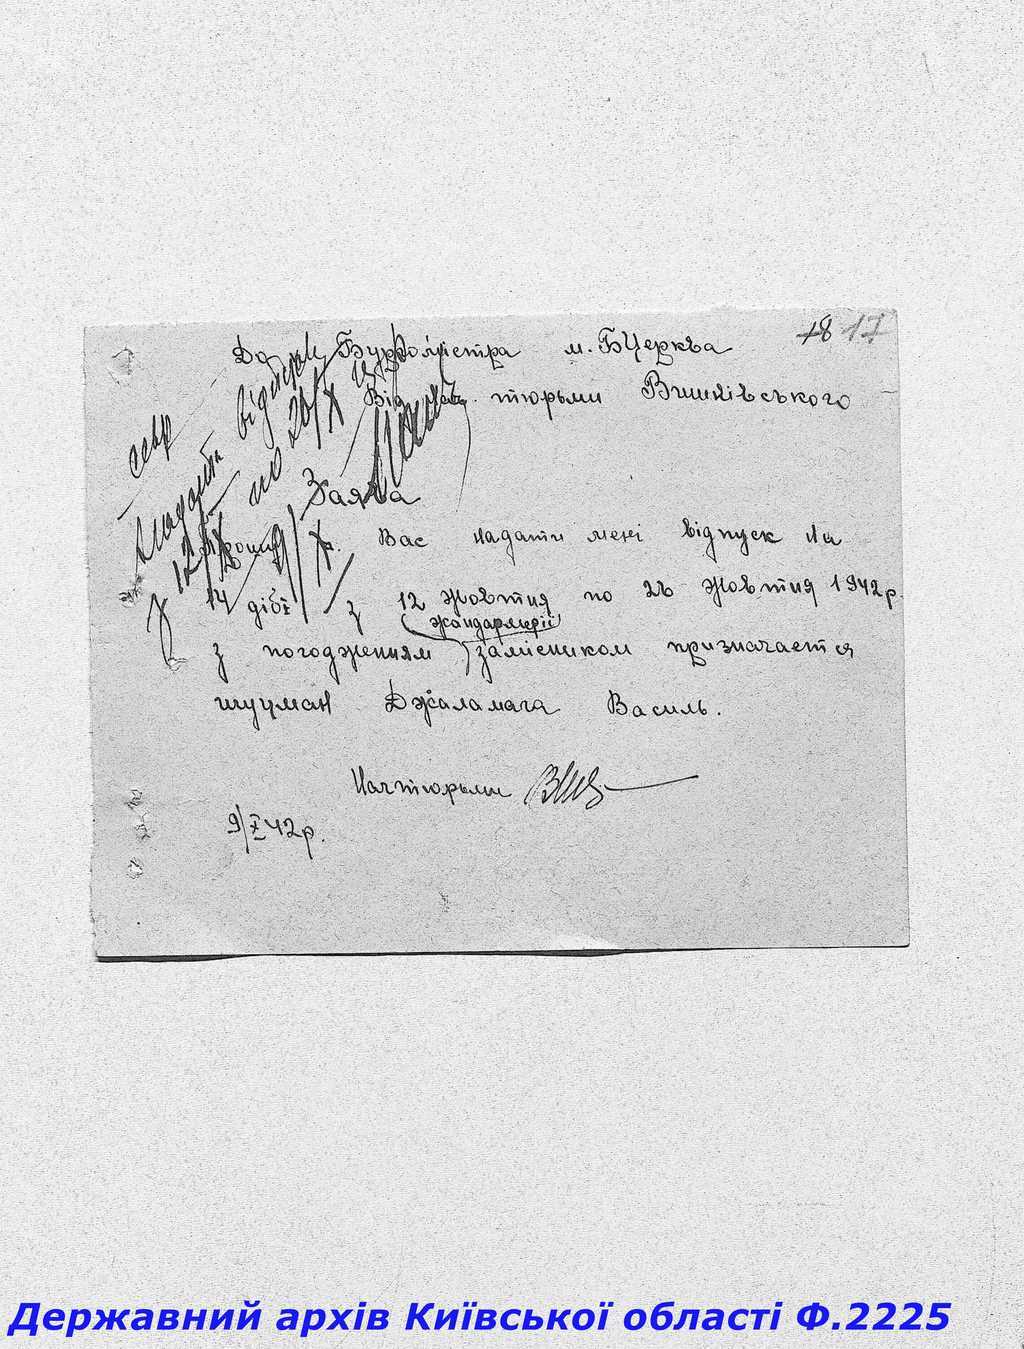 18 17
До Бургомістра м. БЦерква
Від нач. тюрьми Вишнівського
Заява
Прошу Вас надати мені відпуск на
14 діб з 12 жовтня по 26 жовтня 1942 р.
жандармерії
з погодженням заміsником призначаеться
шуцман Джаламага Василь.
Начтюрьми
9/X 42 р.
Надати відпуск
з 12/X по 26/X
9/X
Державний архів Київської області Ф.2225